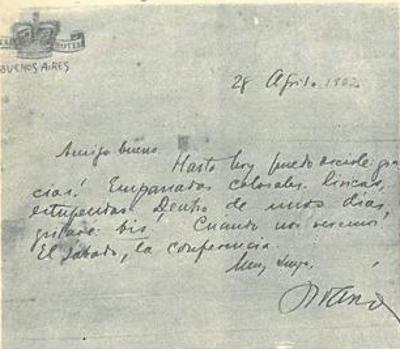 HOTEL
BUENOS AIRES
28 Agosto 1902
Amigo bueno.
Hasta hoy puedo decirle gra-
cias! Empanadas colosales. Liricas,
estupendas. Dentro de unos dias,
gritaré bis! Cuándo nos veremos?
El sábado, la conferencia.
Muy suyo,